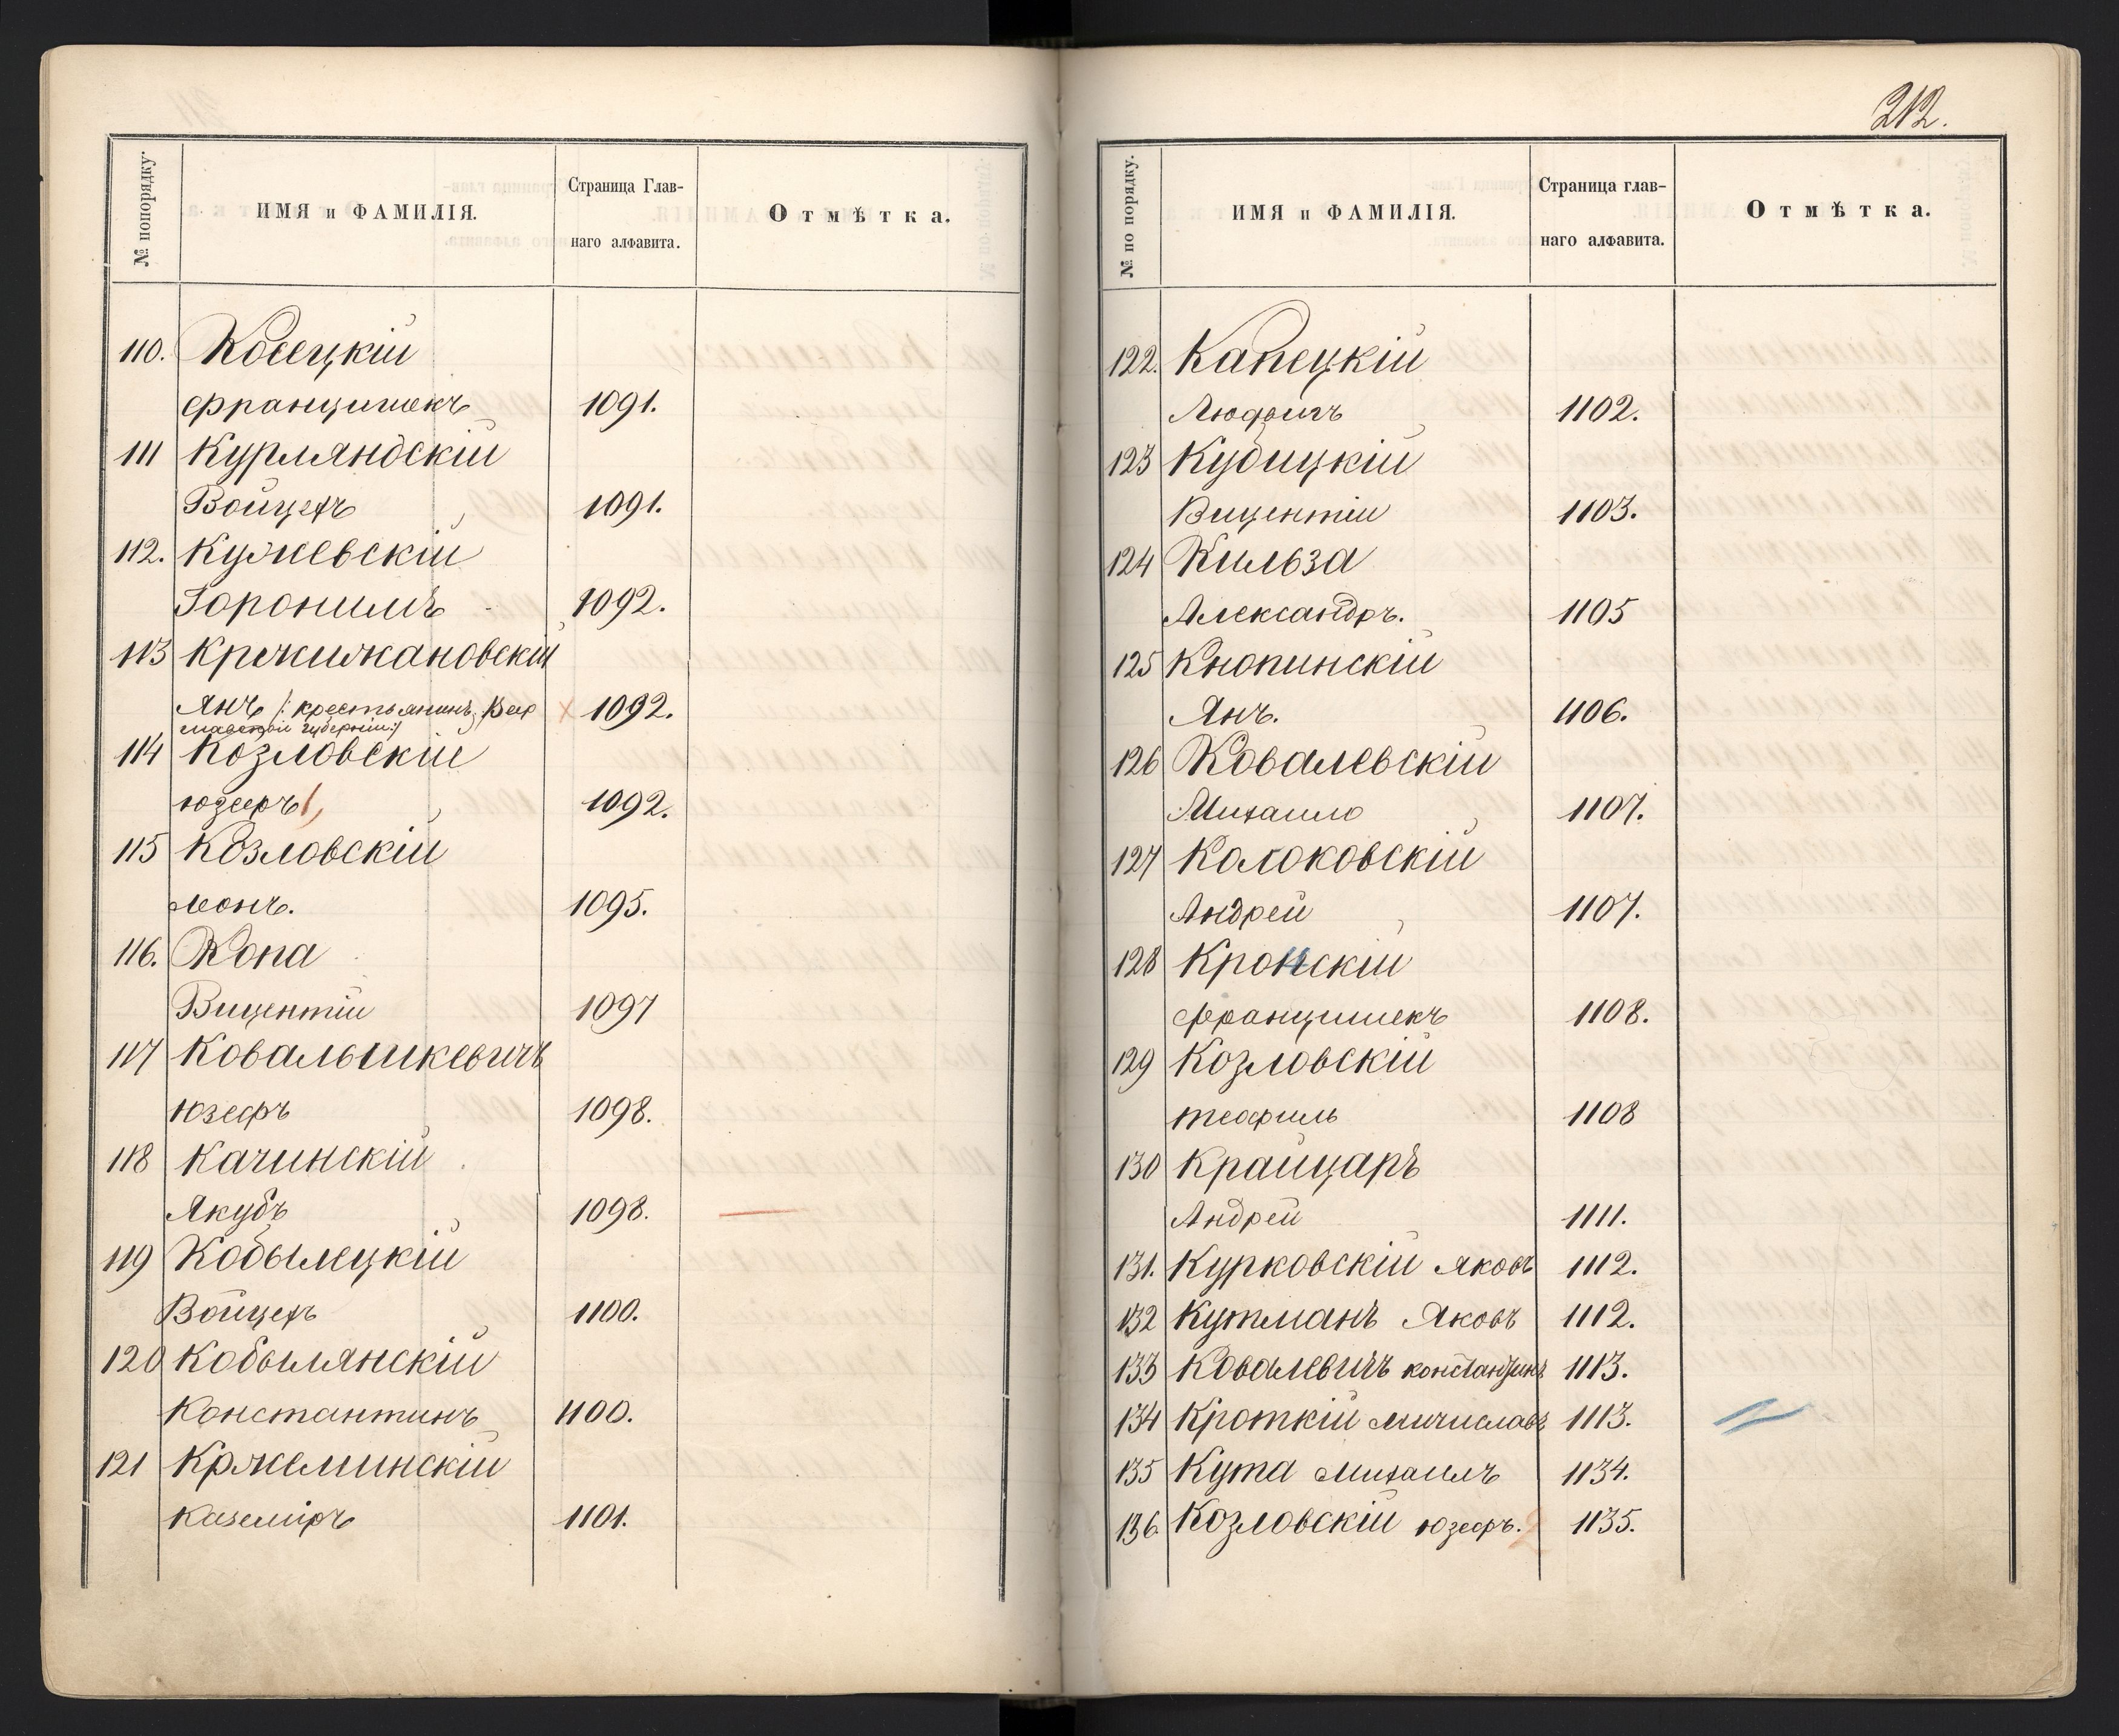 212.
№ попорядку.
ИМЯ и ФАМИЛІЯ.
Страница Глав-
наго алфавита.
Отмѣтка.
110. Косецкій
Францишекъ 1091.
111 Курляндскій
Войцехъ 1091.
112. Кужевскій
Іеронимъ 1092.
113 Кржижановскій
Янъ /: крестьянинъ, 1092.
губерніи:/
114 Козловскій
Юзефъ 1, 1092.
115 Козловскій
Леонъ. 1095.
116. Копа
Вицентій 1097
117 Ковальшкевичъ
Юзефъ 1098.
118 Качинскій
Якубъ 1098.
119 Кобылецкій
Войцехъ 1100.
120 Кобылянскій
Константинъ 1100.
121 Кржеминскій
Каземіръ 1101.
№ по порядку.
ИМЯ и ФАМИЛІЯ.
Страница глав-
наго алфавита.
Отмѣтка.
122. Капецкій
Людвигъ 1102.
123 Кубицкій
Вицентій 1103.
124 Кильза
Александръ. 1105
125 Кнопинскій
Янъ. 1106.
126 Ковалевскій
Михаило 1107.
127 Колоковскій
Андрей 1107.
128 Кронскій
Францишекъ 1108.
129 Козловскій
Теофиль 1108
130 Крайцаръ
Андрей 1111.
131. Курковскій Яковъ 1112.
132 Кутманъ Яковъ 1112.
133 Ковалевичъ Константинъ 1113.
134 Кроткій Мичиславъ 1113.
135 Кута Михаилъ 1134.
136. Козловскій Юзефъ. 2 1135.